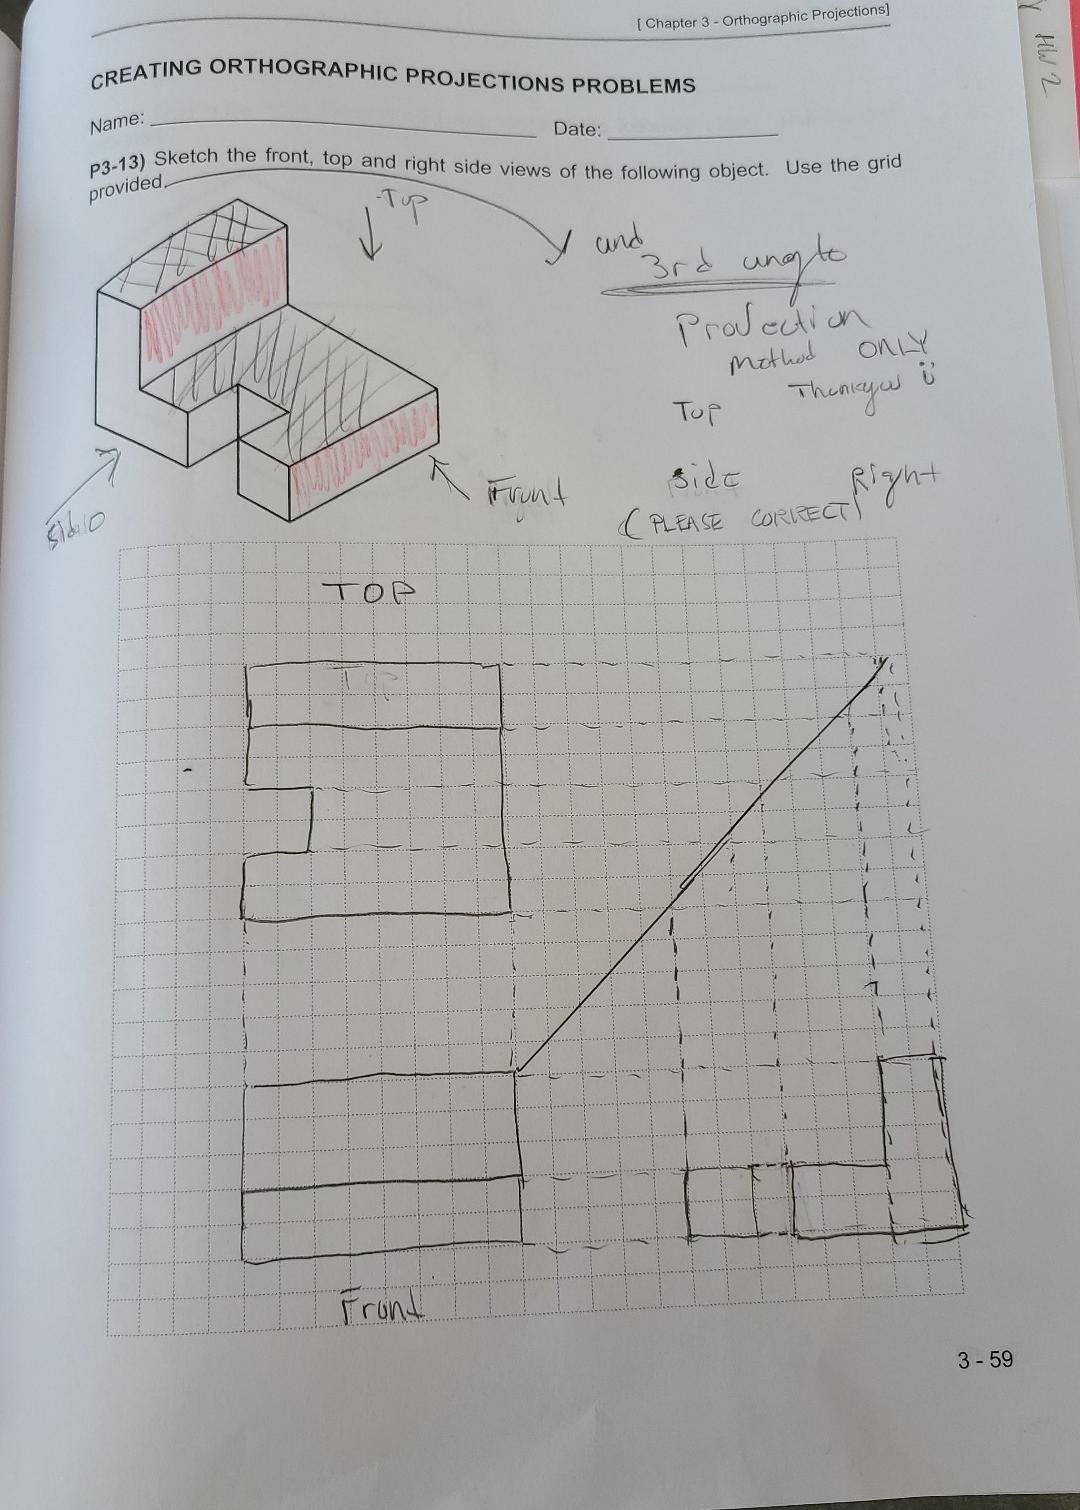 [ Chapter 3 - Orthographic Projections]
HW 2
CREATING ORTHOGRAPHIC PROJECTIONS PROBLEMS
Name: Date:
P3-13) Sketch the front, top and right side views of the following object. Use the grid
provided.
Top
and
3rd
Projection
Method ONLY
Thankyou
Top
Side Right
(PLEASE CORRECT)
Front
TOP
Front
3 - 59